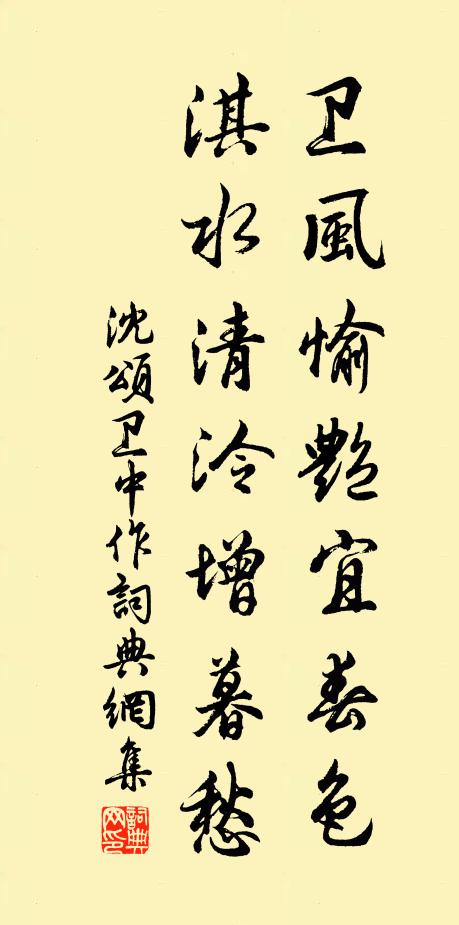 卫風愉艷宜春色
淇水清泠增暮愁
沈頌卫中作詞典網集
詞典网印